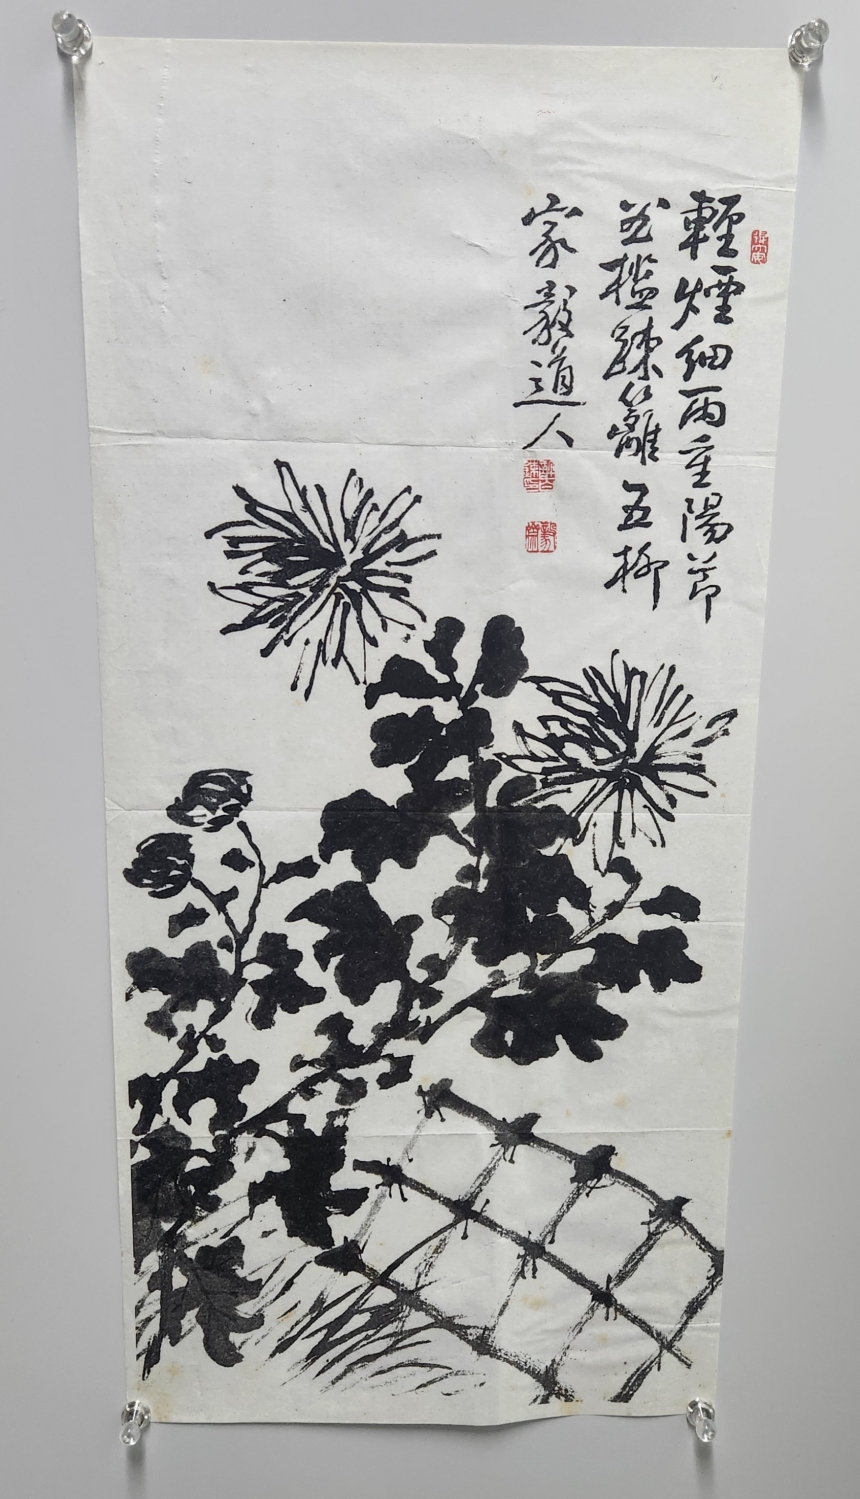 輕煙細雨重陽節
曲檻疎籬五柳
家毅道人